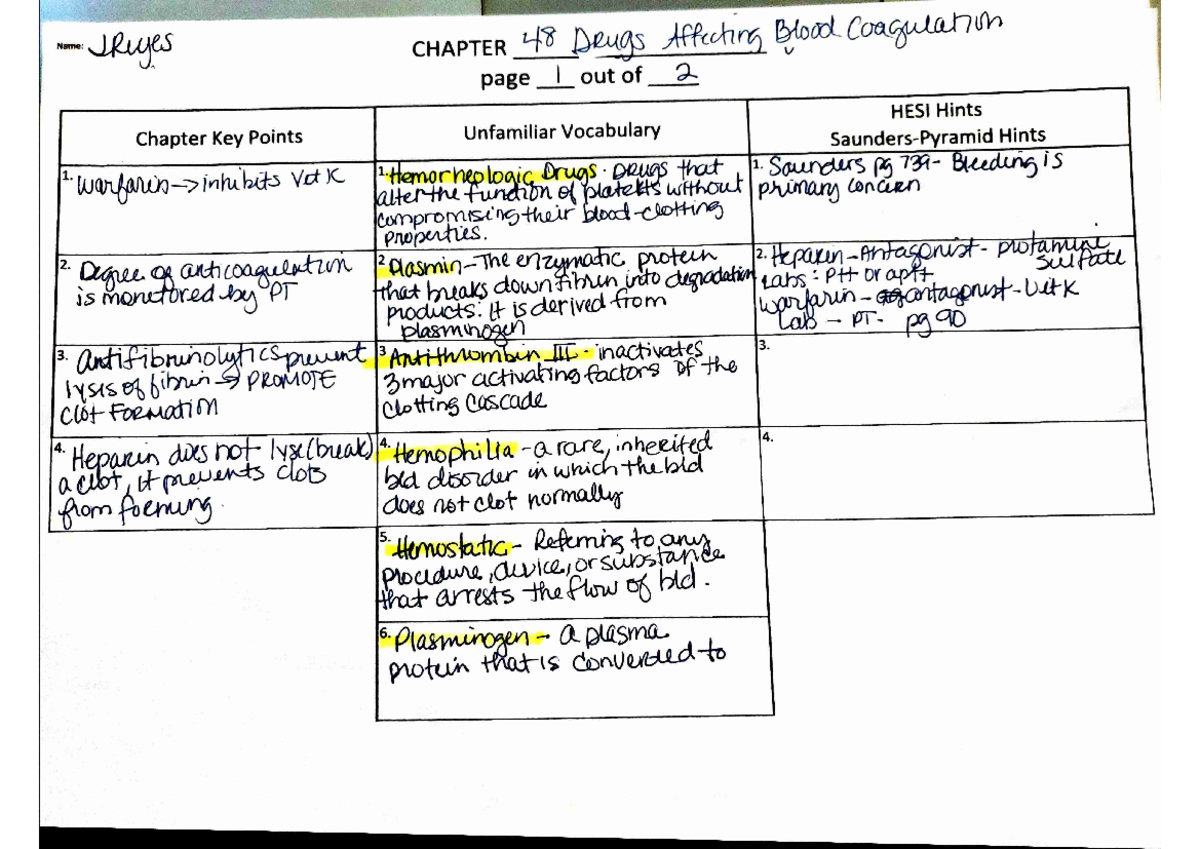 Name: JReyes
CHAPTER 48 Drugs Affecting Blood Coagulation
page 1 out of 2
Chapter Key Points
Unfamiliar Vocabulary
HESI Hints
Saunders-Pyramid Hints
1. Warfarin → inhibits Vit K
1. Hemorheologic Drugs - Drugs that
alter the function of platelets without
compromising their blood-clotting
properties.
1. Saunders pg 739 - Bleeding is
primary concern
2. Degree of anticoagulation
is monitored by PT
2 Plasmin - The enzymatic protein
that breaks down fibrin into degradation
products: it is derived from
plasminogen
2. Heparin - Antagonist - protamine
sulfate
Labs: PTT or aPTT
Warfarin - antagonist - Vit K
Lab - PT - pg 90
3. Antifibrinolytics prevent
lysis of fibrin → PROMOTE
Clot FORMATION
3 Antithrombin III - inactivates
3 major activating factors of the
clotting cascade
3.
4. Heparin does not lyse (break)
a clot, it prevents clots
from forming.
4. Hemophilia - a rare, inherited
bld disorder in which the bld
does not clot normally
4.
5. Hemostatic - Referring to any
procedure, device, or substance
that arrests the flow of bld.
6. Plasminogen - a plasma
protein that is converted to